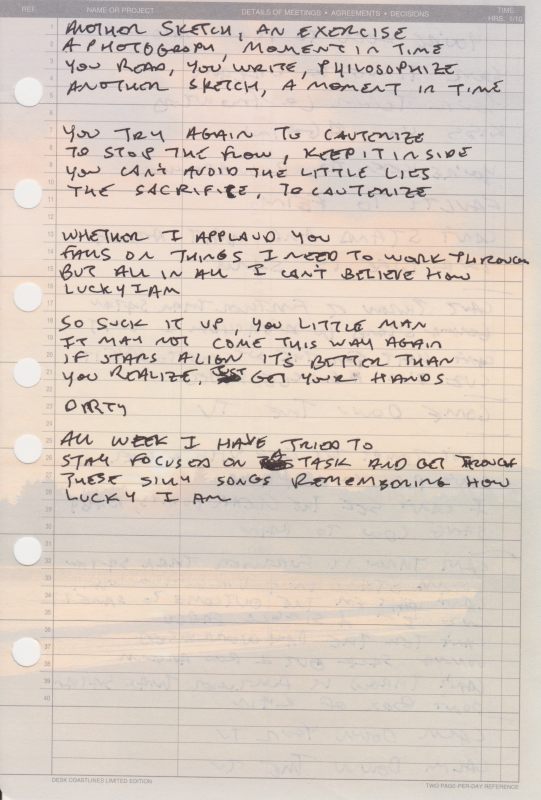 REF. NAME OR PROJECT DETAILS OF MEETINGS • AGREEMENTS • DECISIONS TIME HRS 1/10
ANOTHER SKETCH, AN EXERCISE
A PHOTOGRAPH, MOMENT IN TIME
YOU READ, YOU WRITE, PHILOSOPHIZE
ANOTHER SKETCH, A MOMENT IN TIME
YOU TRY AGAIN TO CAUTERIZE
TO STOP THE FLOW, KEEP IT INSIDE
YOU CAN'T AVOID THE LITTLE LIES
THE SACRIFICE, TO CAUTERIZE
WHETHER I APPLAUD YOU
FALLS ON THINGS I NEED TO WORK THROUGH
BUT ALL IN ALL I CAN'T BELIEVE HOW
LUCKY I AM
SO SUCK IT UP, YOU LITTLE MAN
IT MAY NOT COME THIS WAY AGAIN
IF STARS ALIGN IT'S BETTER THAN
YOU REALIZE, JUST GET YOUR HANDS
DIRTY
ALL WEEK I HAVE TRIED TO
STAY FOCUSED ON A TASK AND GET THROUGH
THESE SILLY SONGS REMEMBORING HOW
LUCKY I AM
DESK COASTLINES LIMITED EDITION TWO PAGE-PER-DAY REFERENCE